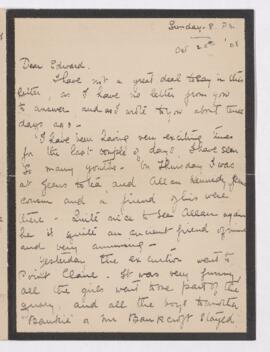 Sunday. 8. P.M.
Oct 25th '08
Dear Edward.
I have not a great deal to say in this
letter, as I have no letter from you
to answer and as I wrote to you about three
days ago -
I have been having very exciting times
for the last couple of days. I have seen
so many youths - On Thursday I was
at Jeans to tea and Allan Kennedy
cousin and a friend of his were
there. Quite nice to see Allan again
he is quite an ancient friend of mine
and very amusing -
Yesterday the excursion went to
Point Claire. It was very funny
all the girls went to one part of the
quarry and all the boys to another
"Bankie" or Mr Bankcroft stayed